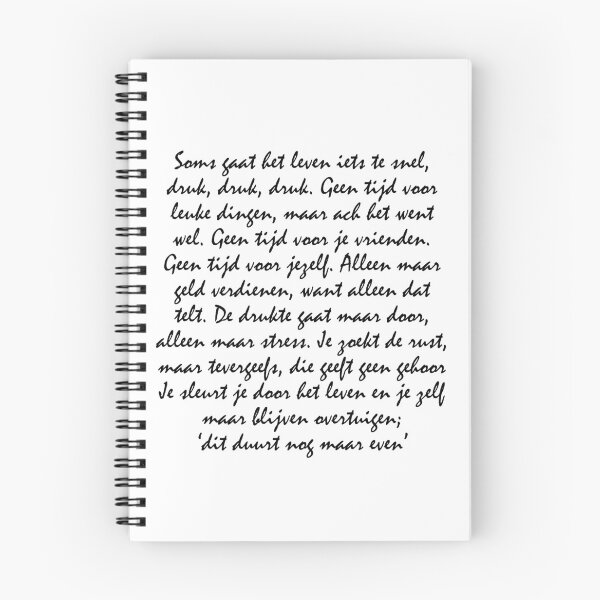 Soms gaat het leven iets te snel,
druk, druk, druk. Geen tijd voor
leuke dingen, maar ach het went
wel. Geen tijd voor je vrienden.
Geen tijd voor jezelf. Alleen maar
geld verdienen, want alleen dat
telt. De drukte gaat maar door,
alleen maar stress. Je zoekt de rust,
maar tevergeefs, die geeft geen gehoor
Je sleurt je door het leven en je zelf
maar blijven overtuigen;
‘dit duurt nog maar even’